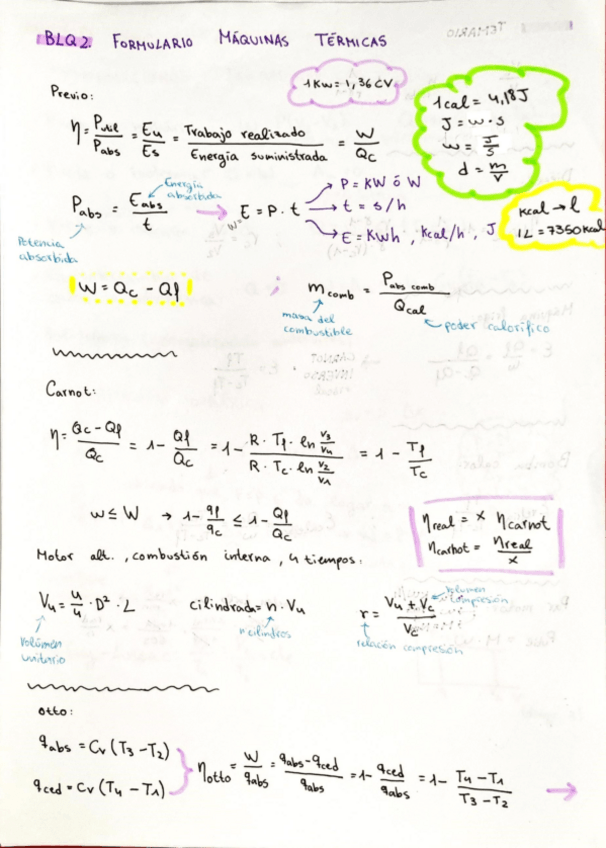 BLQ 2. FORMULARIO MÁQUINAS TÉRMICAS
1 Kw = 1,36 CV
Previo:
1 cal = 4,18 J
J = w · s
w = J/s
d = m/V
η = Pútil/Pabs = Eu/Es = Trabajo realizado/Energía suministrada = W/Qc
Pabs = Eabs/t
Energía absorbida
Potencia absorbida
E = P · t
P = KW ó W
t = s/h
E = Kwh, Kcal/h, J
kcal → l
1L = 7350 kcal
W = Qc - Qf ;
mcomb = Pabs comb/Qcal
masa del combustible
poder calorífico
Carnot:
η = Qc - Qf/Qc = 1 - Qf/Qc = 1 - R · Tf · ln V3/V4 / R · Tc · ln V2/V1 = 1 - Tf/Tc
w ≤ W → 1 - qf/qc ≤ 1 - Qf/Qc
ηreal = x ηcarnot
ηcarnot = ηreal/x
Motor alt., combustión interna, 4 tiempos:
Vu = u/4 · D² · L
volúmen unitario
cilindrada = n · Vu
n cilindros
r = Vu + Vc/Vc
volumen compresión
relación compresión
Otto:
qabs = Cv (T3 - T2)
qced = Cv (T4 - T1)
ηotto = W/qabs = qabs - qced/qabs = 1 - qced/qabs = 1 - T4 - T1/T3 - T2 →